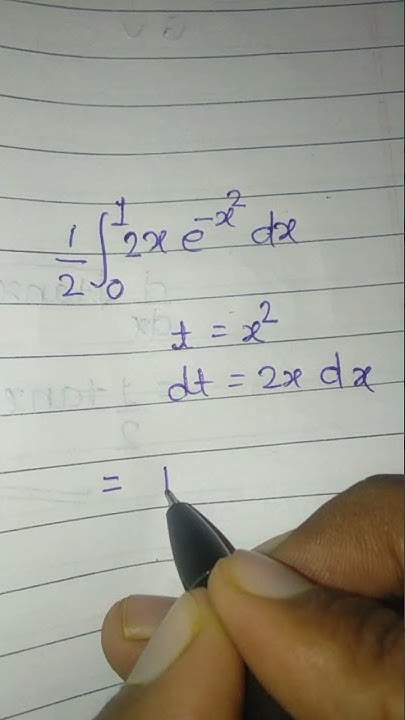 1/2 ∫₀¹ 2x e^(-x²) dx
t = x²
dt = 2x dx
= 1